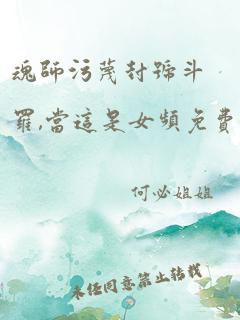 魂師污蔑封號斗
羅,當這是女頻免費
何必姐姐
未經同意禁止轉載